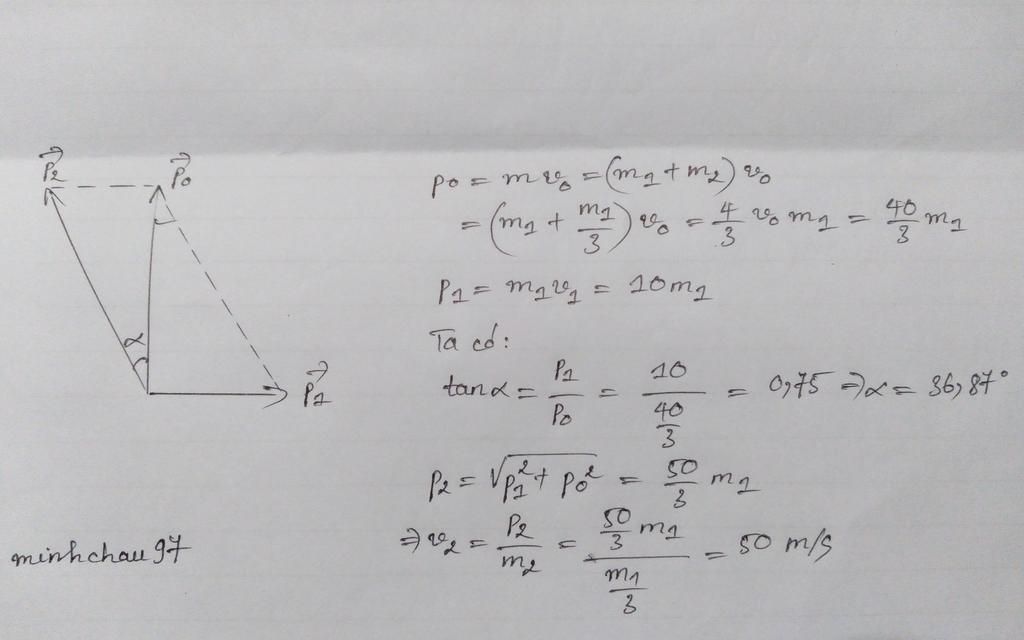 P₂⃗ P₀⃗
α
P₁⃗
p₀ = mv₀ = (m₁ + m₂) v₀
= (m₁ + m₁/3) v₀ = 4/3 v₀ m₁ = 40/3 m₁
P₁ = m₁v₁ = 10m₁
Ta có:
tanα = P₁/P₀ = 10/(40/3) = 0,75 => α = 36,87°
P₂ = √(P₁² + P₀²) = 50/3 m₁
=> v₂ = P₂/m₂ = (50/3 m₁)/(m₁/3) = 50 m/s
minhchau97